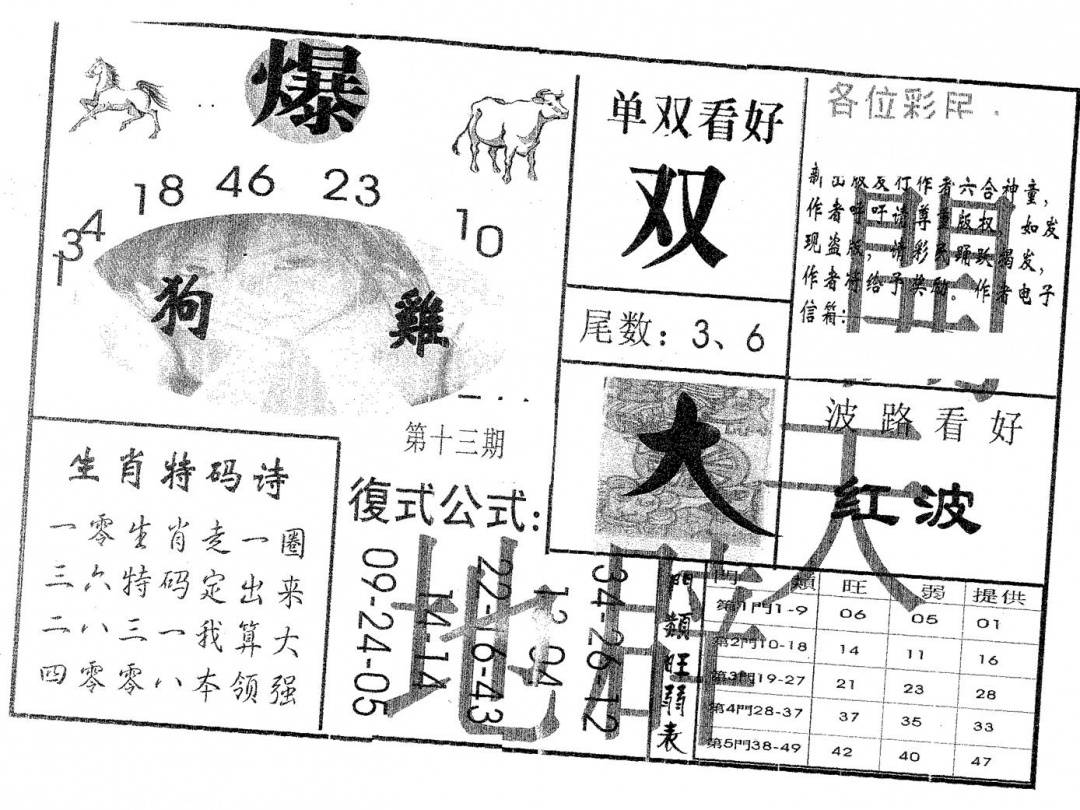 爆
18 46 23
34
1
10
狗 雞
第十三期
单双看好
双
尾数：3、6
各位彩民
作者六合神童，
作者呼吁请尊重版权，如发
现盗版，请彩民踊跃揭发，
作者将给予奖励。作者电子
信箱：
大
波路看好
红波
生肖特码诗
一零生肖走一圈
三六特码定出来
二八三一我算大
四零零八本领强
復式公式：
09-24-05
14-14
22-16-43
34-26-12
門類旺弱表
門類 旺 弱 提供
第1門1-9 06 05 01
第2門10-18 14 11 16
第3門19-27 21 23 28
第4門28-37 37 35 33
第5門38-49 42 40 47